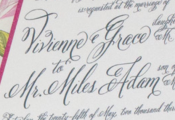 is requested at the marriage of
daughter
Vivienne Grace
to
Mr. Miles Adam
son of Mr.
the twenty-fifth of May, two thousand